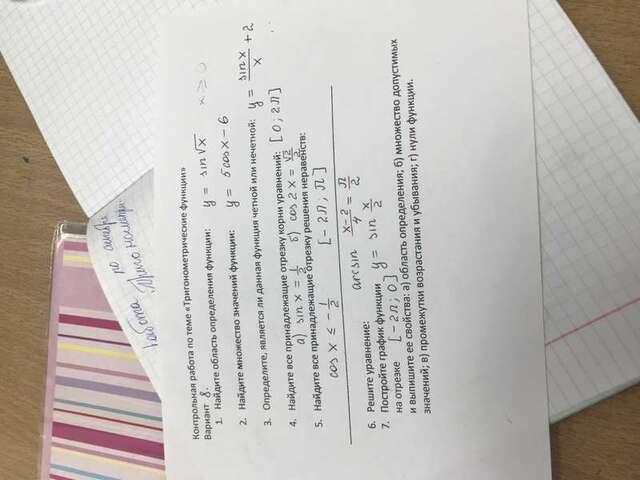 Контрольная работа по теме «Тригонометрические функции»
Вариант 8.
1. Найдите область определения функции: y = sin√x x ≥ 0
2. Найдите множество значений функции: y = 5cosx − 6
3. Определите, является ли данная функция четной или нечетной: y = sinx/x + 2
4. Найдите все принадлежащие отрезку корни уравнений: [0; 2π]
а) sin x = 1/2 б) cos 2x = √2/2
5. Найдите все принадлежащие отрезку решения неравенств:
cos x ≤ −1/2 [−2π; π]
6. Решите уравнение: arcsin x−2/4 = π/2
7. Постройте график функции y = sin x/2
на отрезке [−2π; 0] и выпишите ее свойства: а) область определения; б) множество допустимых
значений; в) промежутки возрастания и убывания; г) нули функции.
работа по алгебре